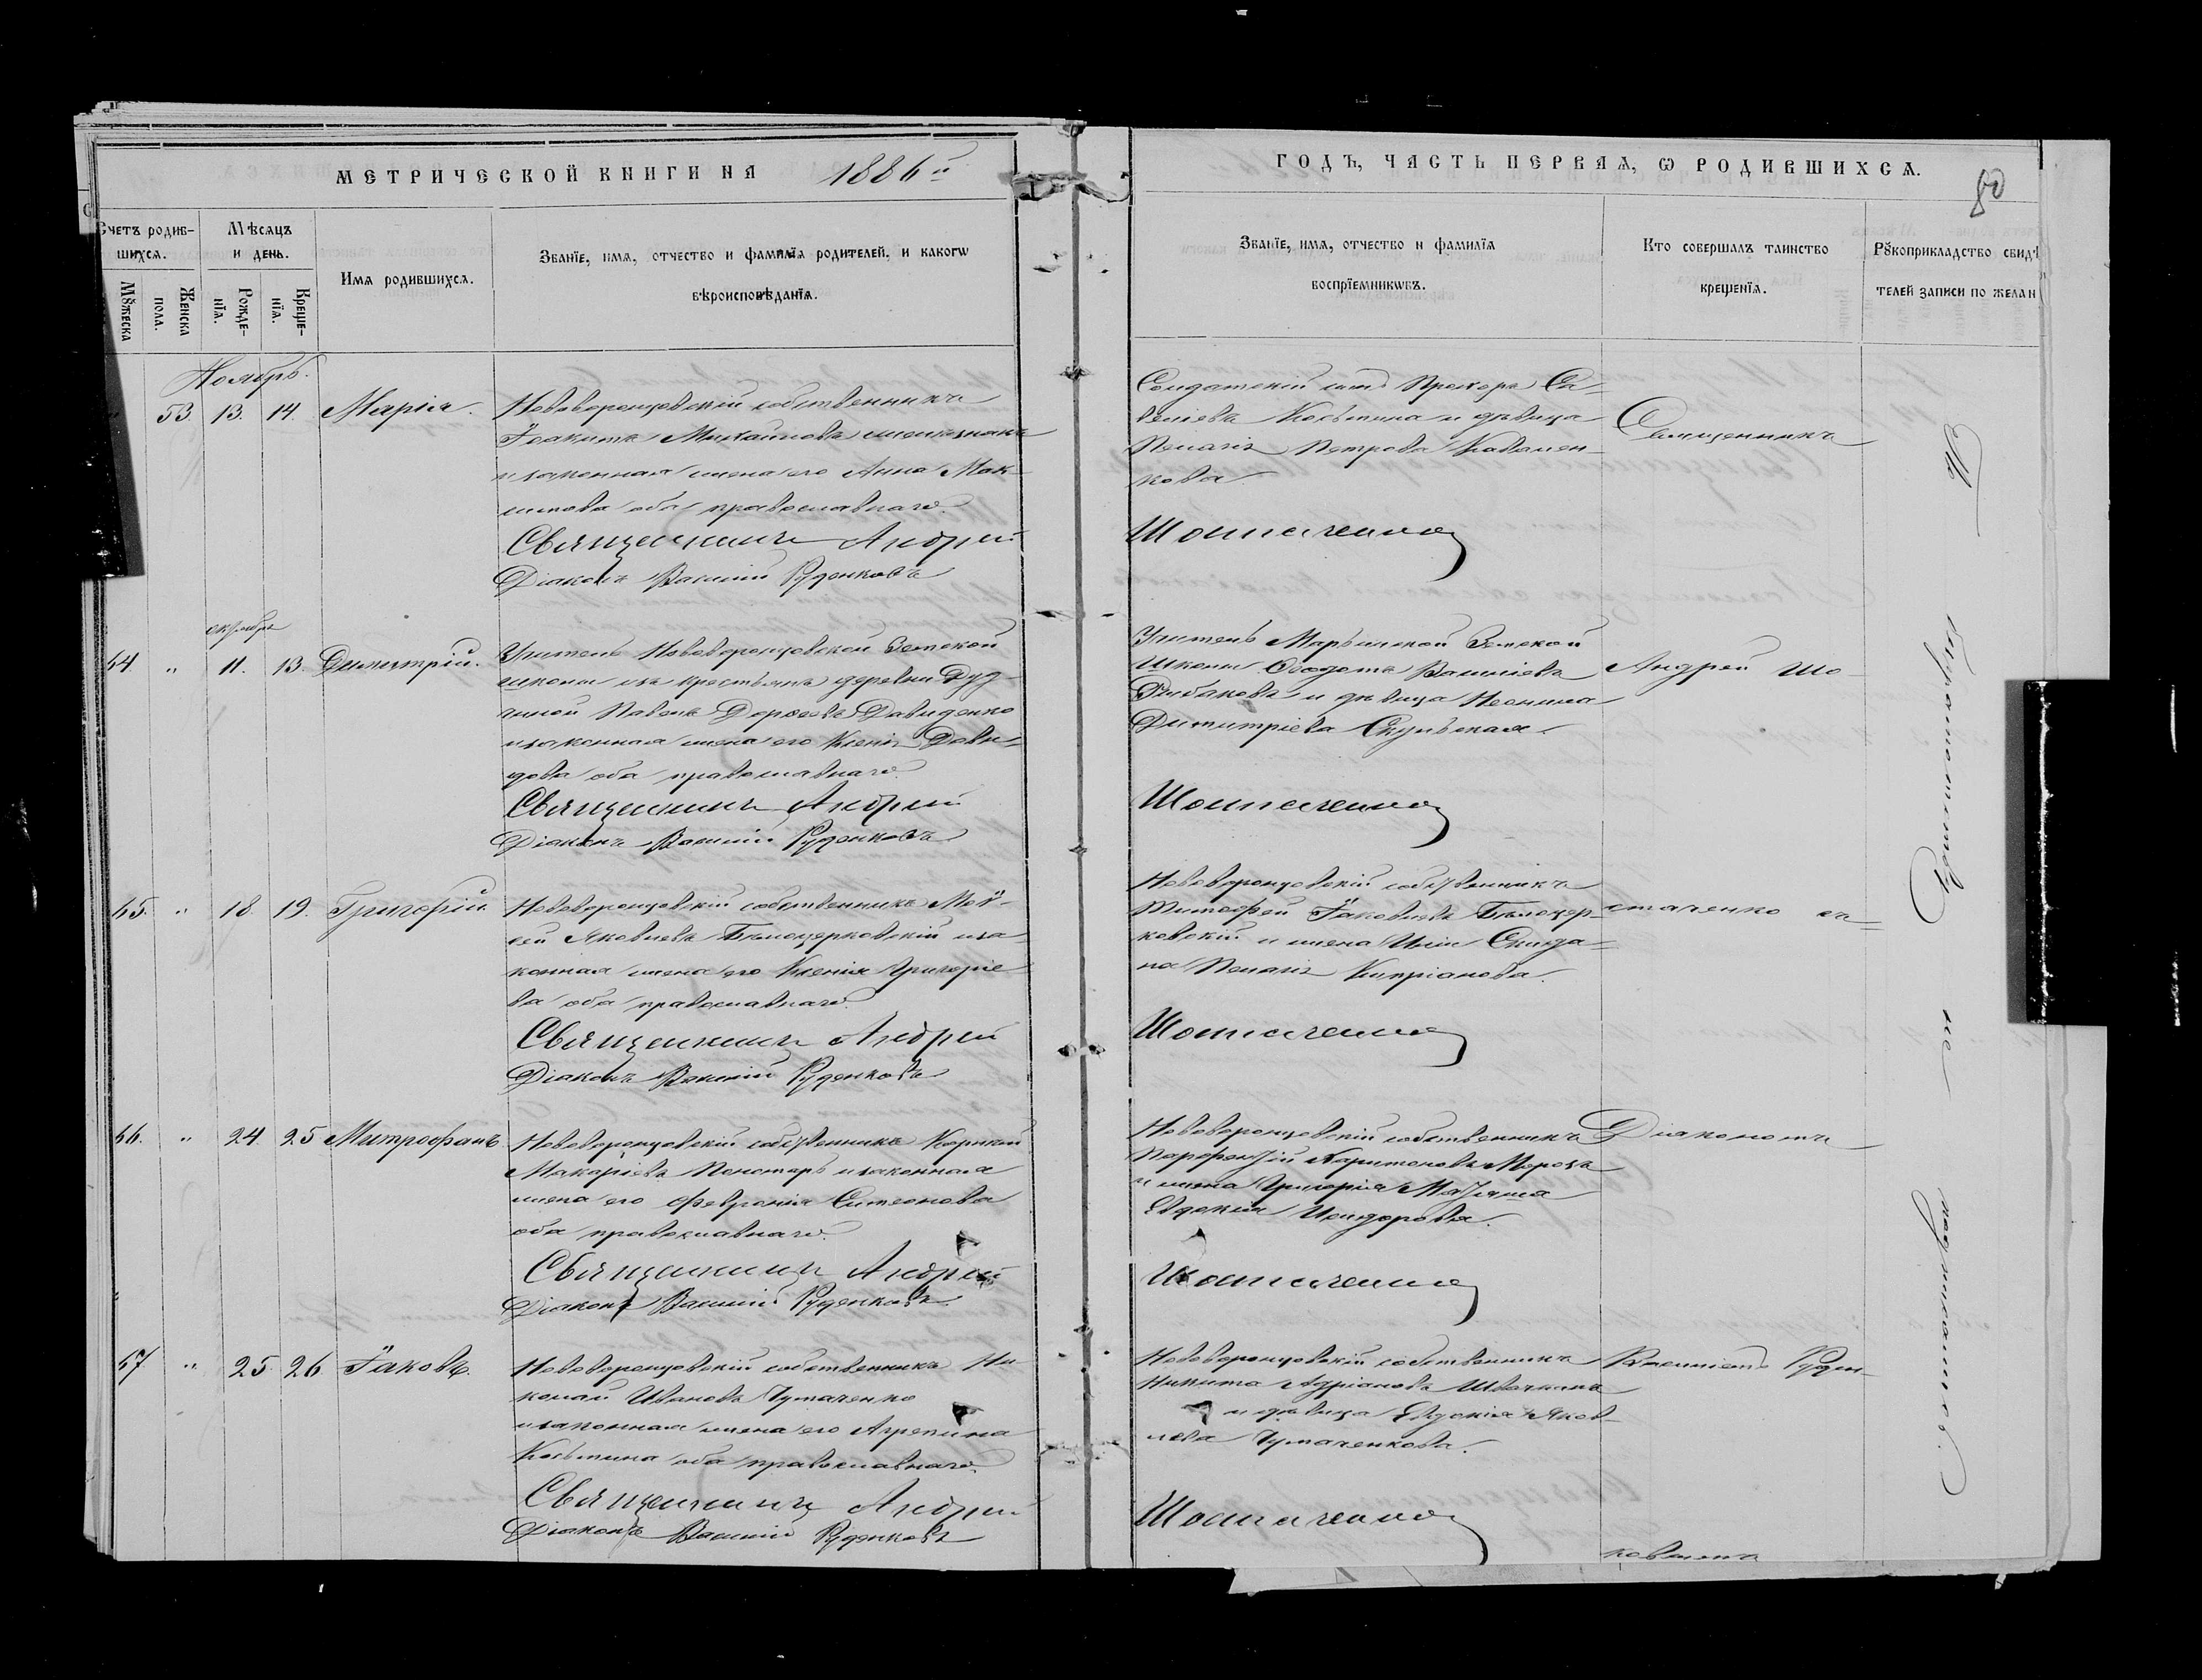 МЕТРИЧЕСКОЙ КНИГИ НА 1886й
ГОДЪ, ЧАСТЬ ПЕРВАЯ, Ѡ РОДИВШИХСЯ.
80
Счетъ родив-
шихся.
Мꙋжеска
Женска
пола.
Мѣсяцъ
и день.
Рожде-
нїя.
Креще-
нїя.
Имя родившихся.
Званїе, имя, отчество и фамилїя родителей, и какогѡ
вѣроисповѣданїя.
Званїе, имя, отчество и фамилїя
воспрїемникѡвъ.
Кто совершалъ таинство
крещенїя.
Рꙋкоприкладство свидѣ
телей записи по желан
Ноябрь.
53. 13. 14. Марія.
Нововоронцовскій собственникъ
Іоакимъ Михайловъ
и законная жена его Анна Мак-
симова оба православнаго.
Священникъ Андрей
Діаконъ Василій Руденковъ
Солдатскій сынъ Прохоръ Са-
веліевъ Косьмина и дѣвица
Пелагія Петрова Коваленкова.
Шостаченко
Священникъ
октябрь
54 " 11. 13. Димитрій.
Учитель Нововоронцовской Земской
школы изъ крестьянъ деревни Дуд-
чиной Павелъ Дороѳеевъ Давиденко
и законная жена его Ксенія Дави-
дова оба православнаго.
Священникъ Андрей
Діаконъ Василій Руденковъ
Учитель Марьинской Земской
школы Ѳеодотъ Василіевъ
Рыбаковъ и дѣвица Неонила
Димитріева
Шостаченко
Андрей Шо-
65. " 18. 19. Григорій.
Нововоронцовскій собственникъ Мой-
сей Яковлевъ Бѣлоцерковскій и за-
конная жена его Ксенія Григоріе-
ва оба православнаго.
Священникъ Андрей
Діаконъ Василій Руденковъ
Нововоронцовскій собственникъ
Тимоѳей Іаковлевъ Бѣлоцер-
ковскій и жена Иліи Скида-
на Пелагія Кипріанова.
Шостаченко
стаченко съ
66. " 24. 25 Митрофанъ.
Нововоронцовскій собственникъ Корнилій
Макаріевъ Пономарь и законная
жена его Февронія Симеонова
оба православнаго.
Священникъ Андрей
Діаконъ Василій Руденковъ
Нововоронцовскій собственникъ
Парфентій Харитоновъ Морозъ
и жена Григорія
Евдокія Исидорова.
Шостаченко
Діакономъ
67 " 25 26. Іаковъ.
Нововоронцовскій собственникъ Ни-
колай Ивановъ Чумаченко
и законная жена его Агрепина
Косьмина оба православнаго.
Священникъ Андрей
Діаконъ Василій Руденковъ
Нововоронцовскій собственникъ
Никита Адріановъ
и дѣвица Евдокія Яков-
лева Чумаченкова.
Шостаченко
Василіемъ Руден-
ковымъ